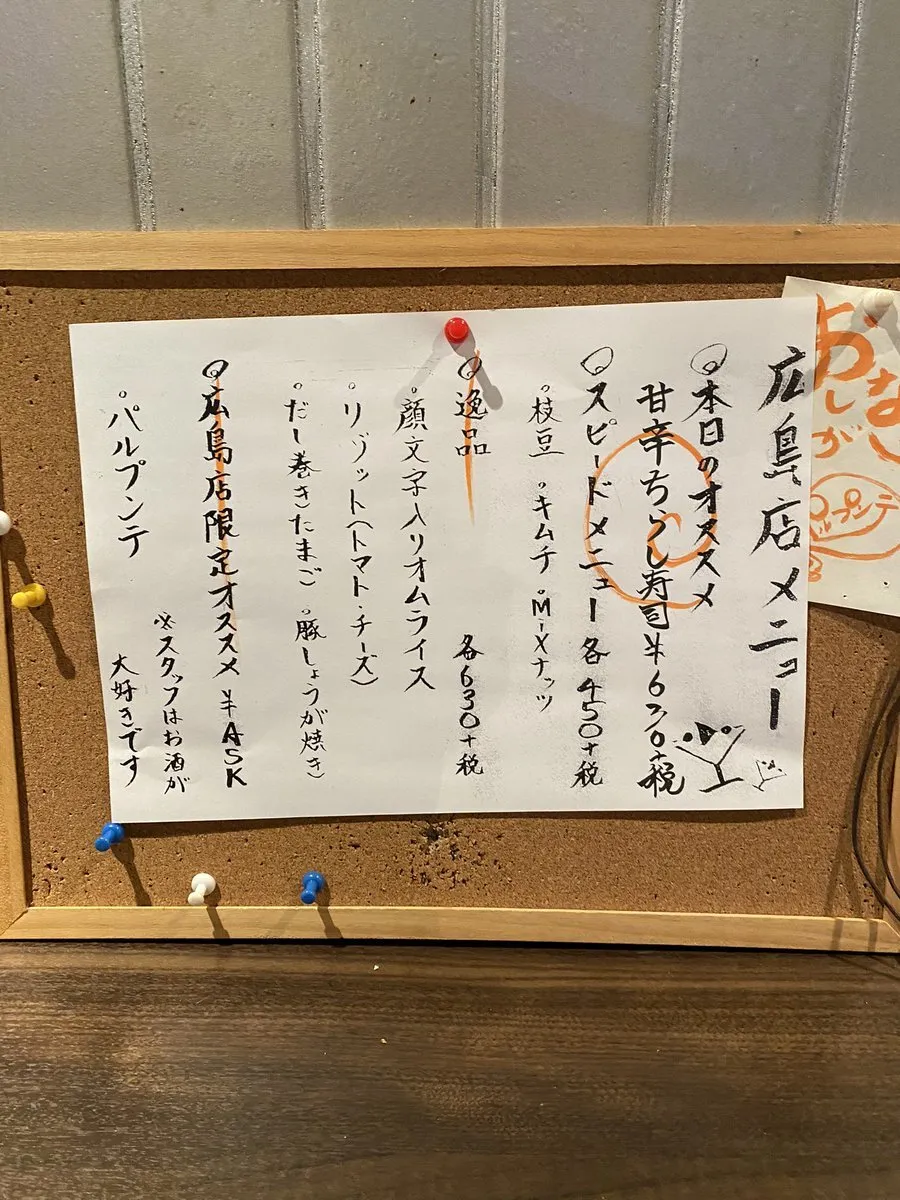 広島店メニュー
◎本日のオススメ
甘辛ちらし寿司¥630+税
◎スピードメニュー 各450+税
。枝豆 。キムチ 。MiXナッツ
◎逸品 各630+税
。顔文字入りオムライス
。リゾット(トマト・チーズ)
。だし巻きたまご 。豚しょうが焼き
◎広島店限定オススメ ¥ASK
。パルプンテ
※スタッフはお酒が
大好きです
おしながき